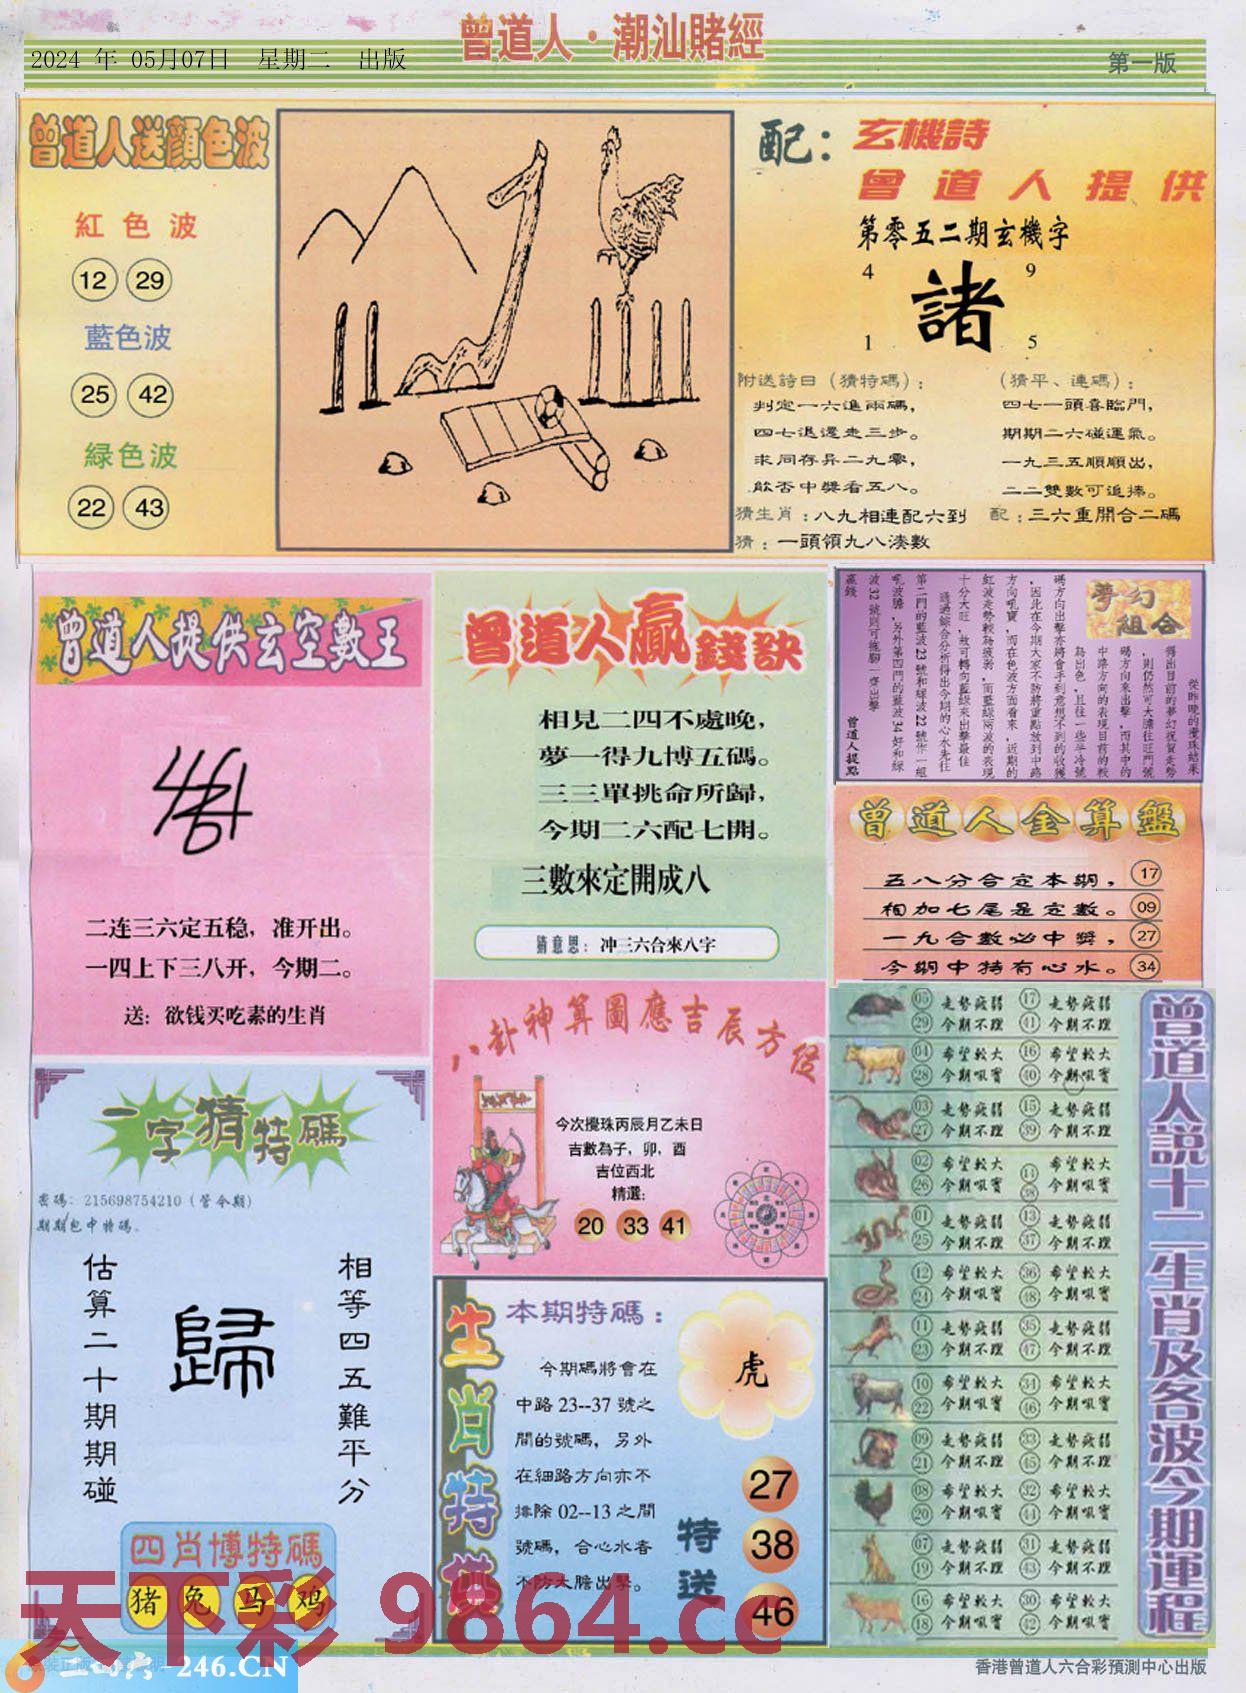 曾道人·潮汕賭經
2024 年 05月07日 星期二 出版
第一版
曾道人送顔色波
紅色波
12 29
藍色波
25 42
緑色波
22 43
配：玄機詩
曾道人提供
第零五二期玄機字
4 9
諸
1 5
附送詩曰（猜特碼）：
判定一六進兩碼，
四七退還走三步。
求同存异二九零，
欲否中獎看五八。
（猜平、連碼）：
四七一頭喜臨門，
期期二六碰運氣。
一九三五順順出，
二二雙數可追捧。
猜生肖：八九相連配六到
配：三六重開合二碼
猜：一頭領九八湊數
曾道人提供玄空數王
二连三六定五稳，准开出。
一四上下三八开，今期二。
送：欲钱买吃素的生肖
曾道人贏錢訣
相見二四不處晚，
夢一得九博五碼。
三三單挑命所歸，
今期二六配七開。
三數來定開成八
猜意思：冲三六合來八字
夢幻
組合
從昨晚的攪珠結果
得出目前的夢幻祝賀走勢
，則仍然可大膽往旺門號
碼方向來出擊，而其中的
中路方向的表現目前的較
為出色，且往一些半冷號
碼方向出擊亦將會手到意想不到的收獲
，因此在今期大家不防將重點放到中路
方向吼寶，而在色波方面看來，近期的
紅波走勢較為疲弱，而藍綠兩波的表現
十分大旺，故可轉向藍綠來出擊最佳
通過綜合分析得出今期的心水先往
第二門的藍波23號和綠波22號作一組
吼波膽，另外第四門的藍波34好和綠
波32號則可拖腳一齊出擊
贏錢
曾道人提點
曾道人金算盤
五八分合定本期，17
相加七尾是定數。09
一九合數必中獎，27
今期中特有心水。34
一字猜特碼
密碼：215698754210（管今期）
期期包中特碼.
相等四五難平分
歸
估算二十期期碰
四肖博特碼
猪 兔 马 鸡
八卦神算圖應吉辰方位
今次攪珠丙辰月乙未日
吉數為子，卯，酉
吉位西北
精選：
20 33 41
生肖特供
本期特碼：
今期碼將會在
中路 23--37 號之
間的號碼，另外
在細路方向亦不
排除 02--13 之間
號碼，合心水者
不防大膽出擊。
虎
特送
27
38
46
曾道人説十二生肖及各波今期運程
05 走勢疲弱 17 走勢疲弱
29 今期不理 41 今期不理
04 希望較大 16 希望較大
28 今期吼寶 40 今期吼寶
03 走勢疲弱 15 走勢疲弱
27 今期不理 39 今期不理
02 希望較大 14 希望較大
26 今期吼寶 38 今期吼寶
01 走勢疲弱 13 走勢疲弱
25 今期不理 37 今期不理
12 希望較大 36 希望較大
24 今期吼寶 48 今期吼寶
11 走勢疲弱 35 走勢疲弱
23 今期不理 47 今期不理
10 希望較大 34 希望較大
22 今期吼寶 46 今期吼寶
09 走勢疲弱 33 走勢疲弱
21 今期不理 45 今期不理
08 希望較大 32 希望較大
20 今期吼寶 44 今期吼寶
07 走勢疲弱 31 走勢疲弱
19 今期不理 43 今期不理
16 希望較大 30 希望較大
18 今期吼寶 42 今期吼寶
天下彩 9864.cc
二四六-246.CN
香港曾道人六合彩預測中心出版